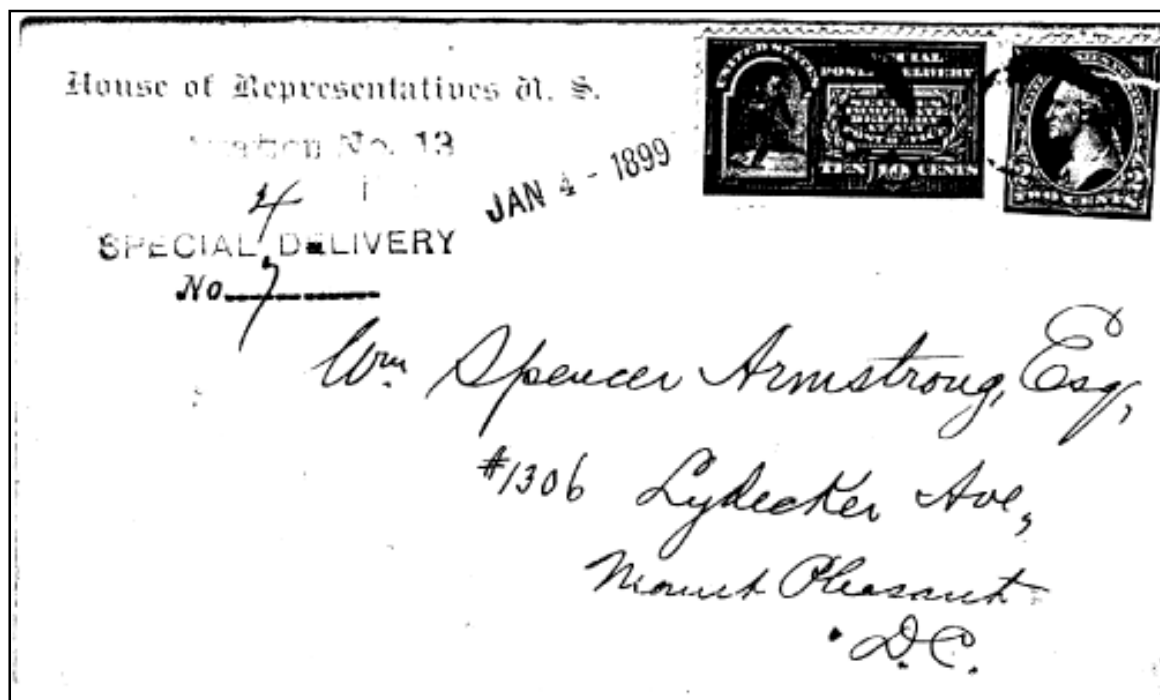 House of Representatives U. S.
Station No. 13
JAN 4 - 1899
4
SPECIAL DELIVERY
No. 7
UNITED STATES
SPECIAL
POSTAL DELIVERY
TEN 10 CENTS
2 2
TWO CENTS
Wm. Spencer Armstrong, Esq,
#1306 Lydecker Ave,
Mount Pleasant
D.C.